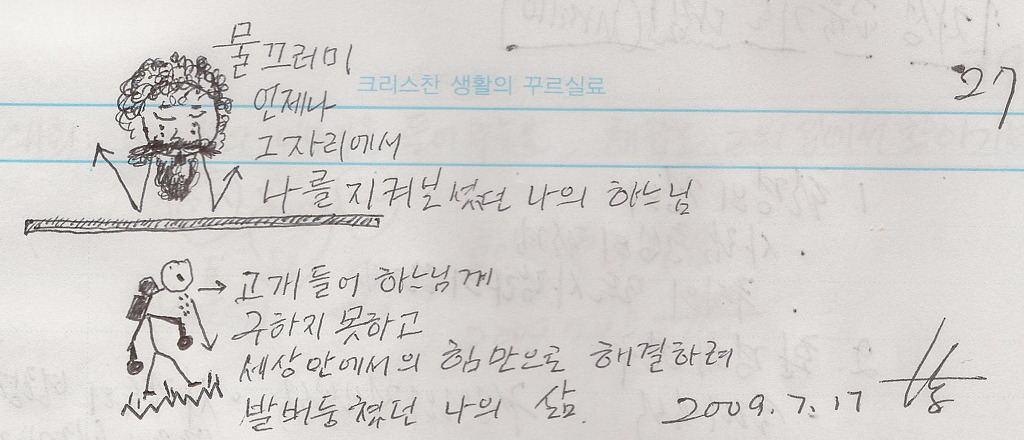 물끄러미
크리스찬 생활의 꾸르실료
27
언제나
그자리에서
나를 지켜보셨던 나의 하느님
고개들어 하느님께
구하지 못하고
세상안에서의 힘만으로 해결하려
발버둥쳤던 나의 삶.
2009. 7. 17